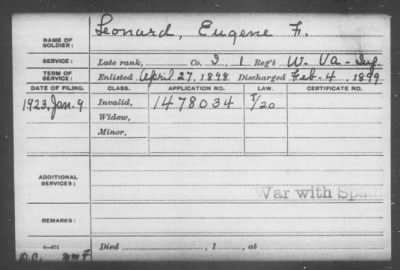 NAME OF SOLDIER: Leonard, Eugene F.
SERVICE: Late rank, Co. I, 1 Reg't W. Va. Inf.
TERM OF SERVICE: Enlisted April 27, 1898 Discharged Feb. 4, 1899
DATE OF FILING. CLASS. APPLICATION NO. LAW. CERTIFICATE NO.
1923, Jan. 9 Invalid, 1478034
Widow,
Minor,
ADDITIONAL SERVICES:
War with Spain
REMARKS:
Died , 1 , at